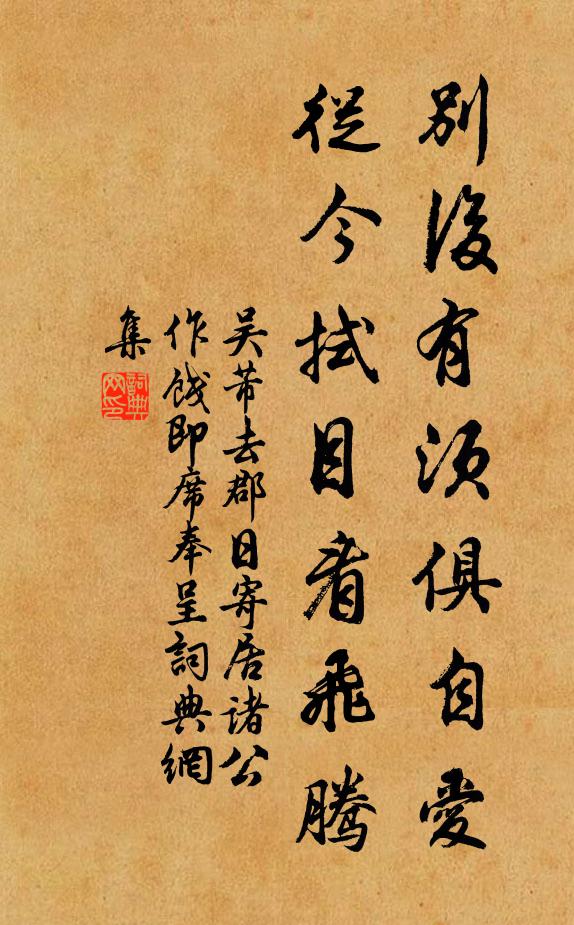 別後有須俱自愛
從今拭目看飛騰
吳芾去郡日寄居諸公
作餞即席奉呈詞典網
集
詞典
网印